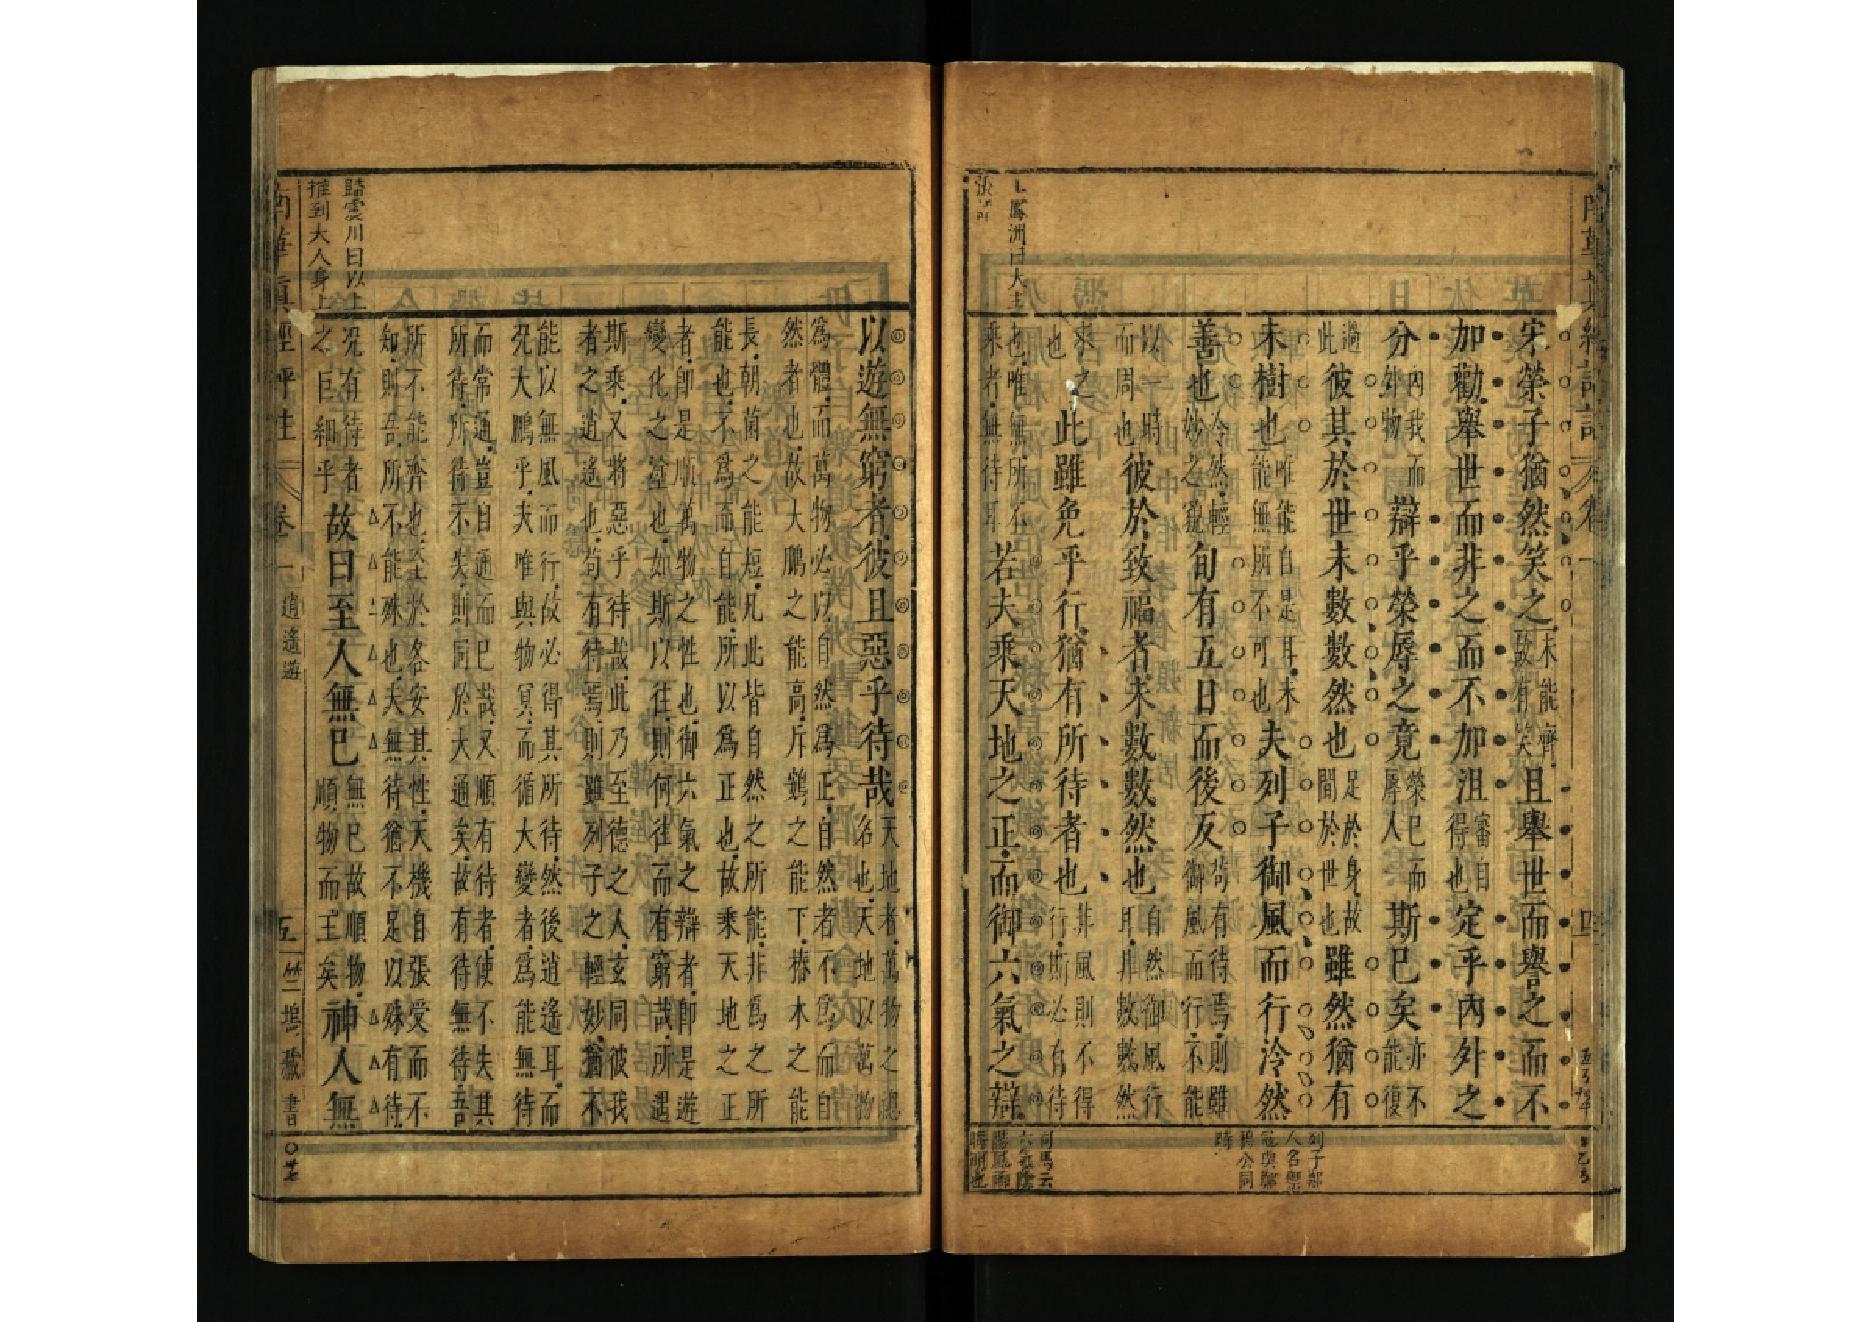 宋榮子猶然笑之未能齊故有笑且舉世而譽之而不
加勸舉世而非之而不加沮審自得也定乎內外之
分內我而外物辯乎榮辱之竟榮己而辱人斯已矣亦不能復
過此彼其於世未數數然也足於身故間於世也雖然猶有
未樹也唯能自是耳未能無所不可也夫列子御風而行泠然
善也泠然輕妙之貌旬有五日而後反苟有待焉則雖御風而行不能
以一時而周也彼於致福者未數數然也自然御風行耳非數數然
求之也此雖免乎行猶有所待者也非風則不得行斯必有待
也唯無所不乘者無待耳若夫乘天地之正而御六氣之辯
列子鄭
人名禦
寇與鄭
穆公同
時
司馬云
六氣陰
陽風雨
晦明也
以遊無窮者彼且惡乎待哉天地者萬物之總名也天地以萬物
為體而萬物必以自然為正自然者不為而自
然者也故大鵬之能高斥鷃之能下椿木之能
長朝菌之能短凡此皆自然之所能非為之所
能也不為而自能所以為正也故乘天地之正
者即是順萬物之性也御六氣之辯者即是遊
變化之塗也如斯以往則何往而有窮哉所遇
斯乘又將惡乎待哉此乃至德之人玄同彼我
者之逍遙也苟有待焉則雖列子之輕妙猶不
能以無風而行故必得其所待然後逍遙耳而
況大鵬乎夫唯與物冥而循大變者為能無待
而常通豈自通而已哉又順有待者使不失其
所待所待不失則同於大通矣故有待無待吾
所不能齊也至於各安其性天機自張受而不
知則吾所不能殊也夫無待猶不足以殊有待
況有待者之巨細乎故曰至人無已無已故順物順物而王矣神人無
歸震川曰以上
推到大人身上
南華真經評註 卷一 逍遙遊 五 竺塢藏書